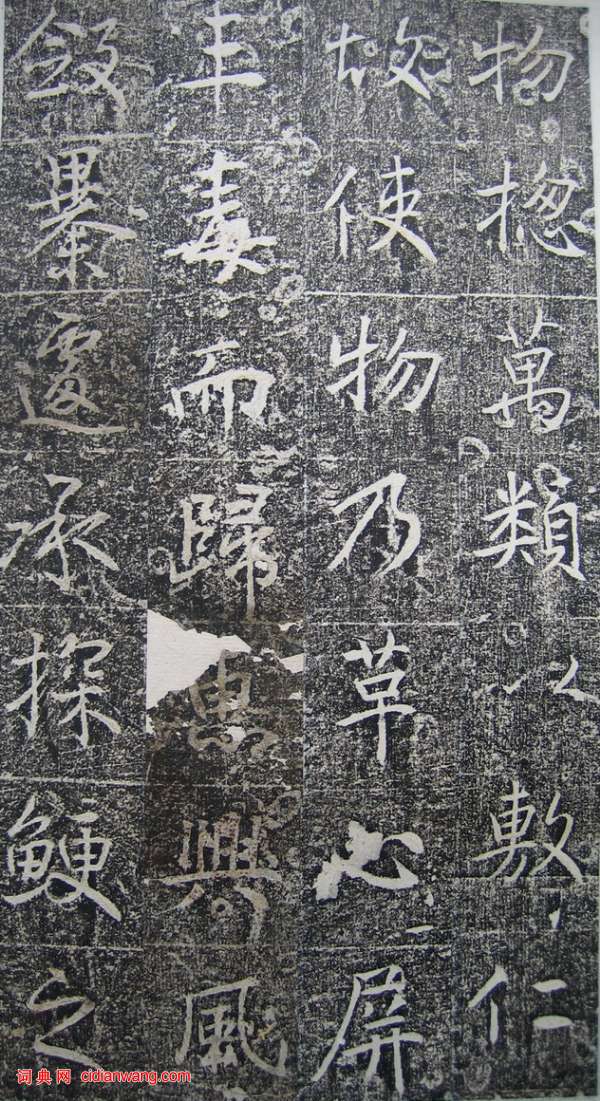 物揔萬類以敷仁
故使物乃革心屏
毒而歸惠興風
暴遽承探鯁之
词典网 cidianwang.com